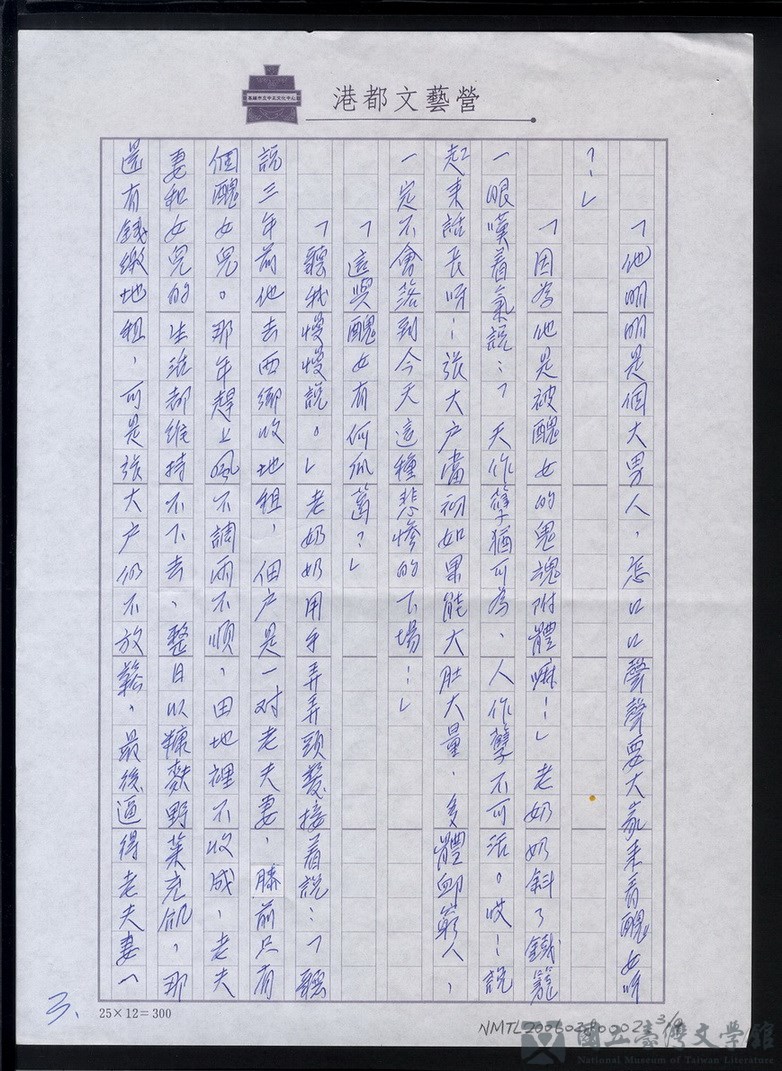 高雄市立中正文化中心
港都文藝營
「他明明是個大男人,怎口口聲聲要大家来看醜女呀
?!」
「因為他是被醜女的鬼魂附體嘛!」老奶奶斜了鐵籠
一眼嘆着氣說:「天作孽猶可為,人作孽不可活。哎!說
起来話長呀!張大户當初如果能大肚大量,多體卹窮人,
一定不會落到今天這種悲慘的下場!」
「這與醜女有何瓜葛?」
「聽我慢慢說。」老奶奶用手弄弄頭髮接着說:「聽
說三年前他去西鄉收地租,佃户是一对老夫妻,膝前只有
個醜女兒。那年趕上風不調雨不順,田地裡不收成,老夫
妻和女兒的生活都維持不下去,整日以糠麩野菜充飢,那
還有錢繳地租,可是張大户仍不放鬆,最後逼得老夫妻一
3、
25×12=300
NMTL20060280002 3/
國立臺灣文學館
National Museum of Taiwan Literature